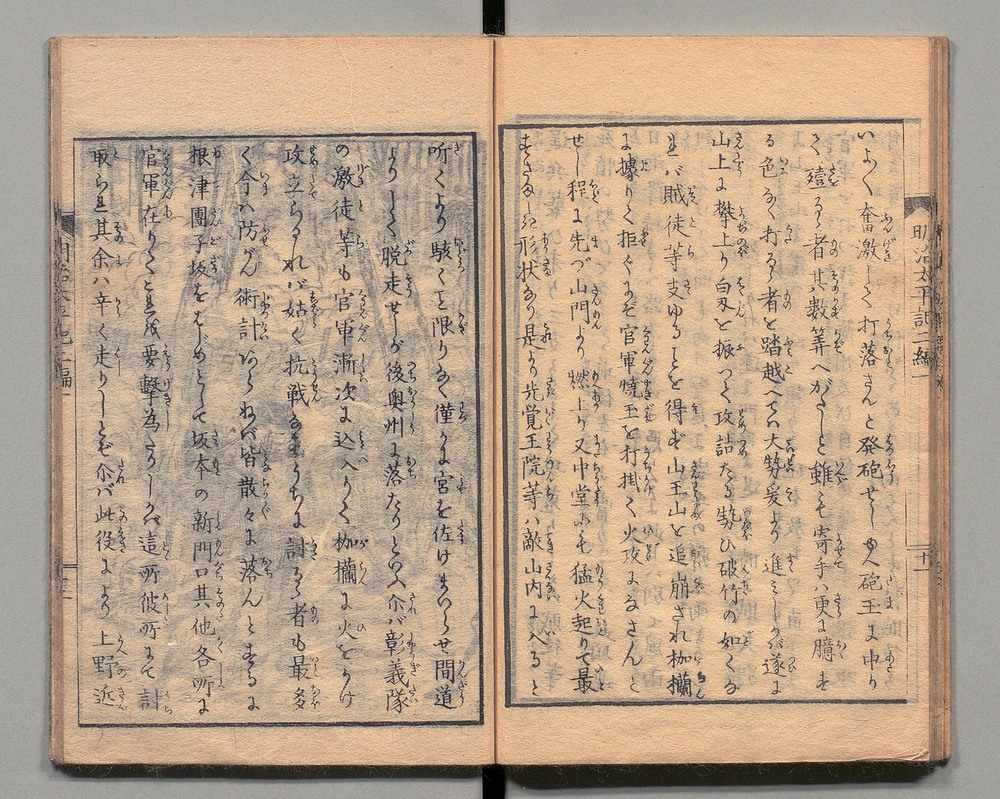 いよ〱奮激して打落さんと発砲せしゆへ砲玉に中り
て殪るゝ者其数算へがたしと雖も寄手ハ更に臆す
る色なく打るゝ者を踏越へて大勢爰より進ミしかバ遂に
山上に攀上り白刃を振つて攻詰たる勢ひ破竹の如くなれ
バ賊徒等支ゆることを得ず山王山を追崩され枷欄
に據りて拒ぐにぞ官軍焼玉を打掛て火攻になさんと
せし程に先づ山門より燃上り又中堂にも猛火起りて最
形状なり是より光覚王院等ハ敵山内に入ると
明治太平記二編
十一
听くより駭くこと限りなく僅かに宮を佐けまいらせ間道
よりして脱走せしが後奥州に落たりといふ尒バ彰義隊
の激徒等も官軍漸次に込入りて枷欄に火をかけ
攻立らるれバ姑く抗戦なすうちに討るゝ者も最多
く今ハ防がん術計あらねバ皆散々に落んとするに
根津團子坂をはじめとして坂本の新門口其他各所に
官軍在りてこれを要撃為たりしかバ這所彼所にて討
取られ其余ハ辛く走りしとぞ尒バ此役により上野近
明治太平記二編